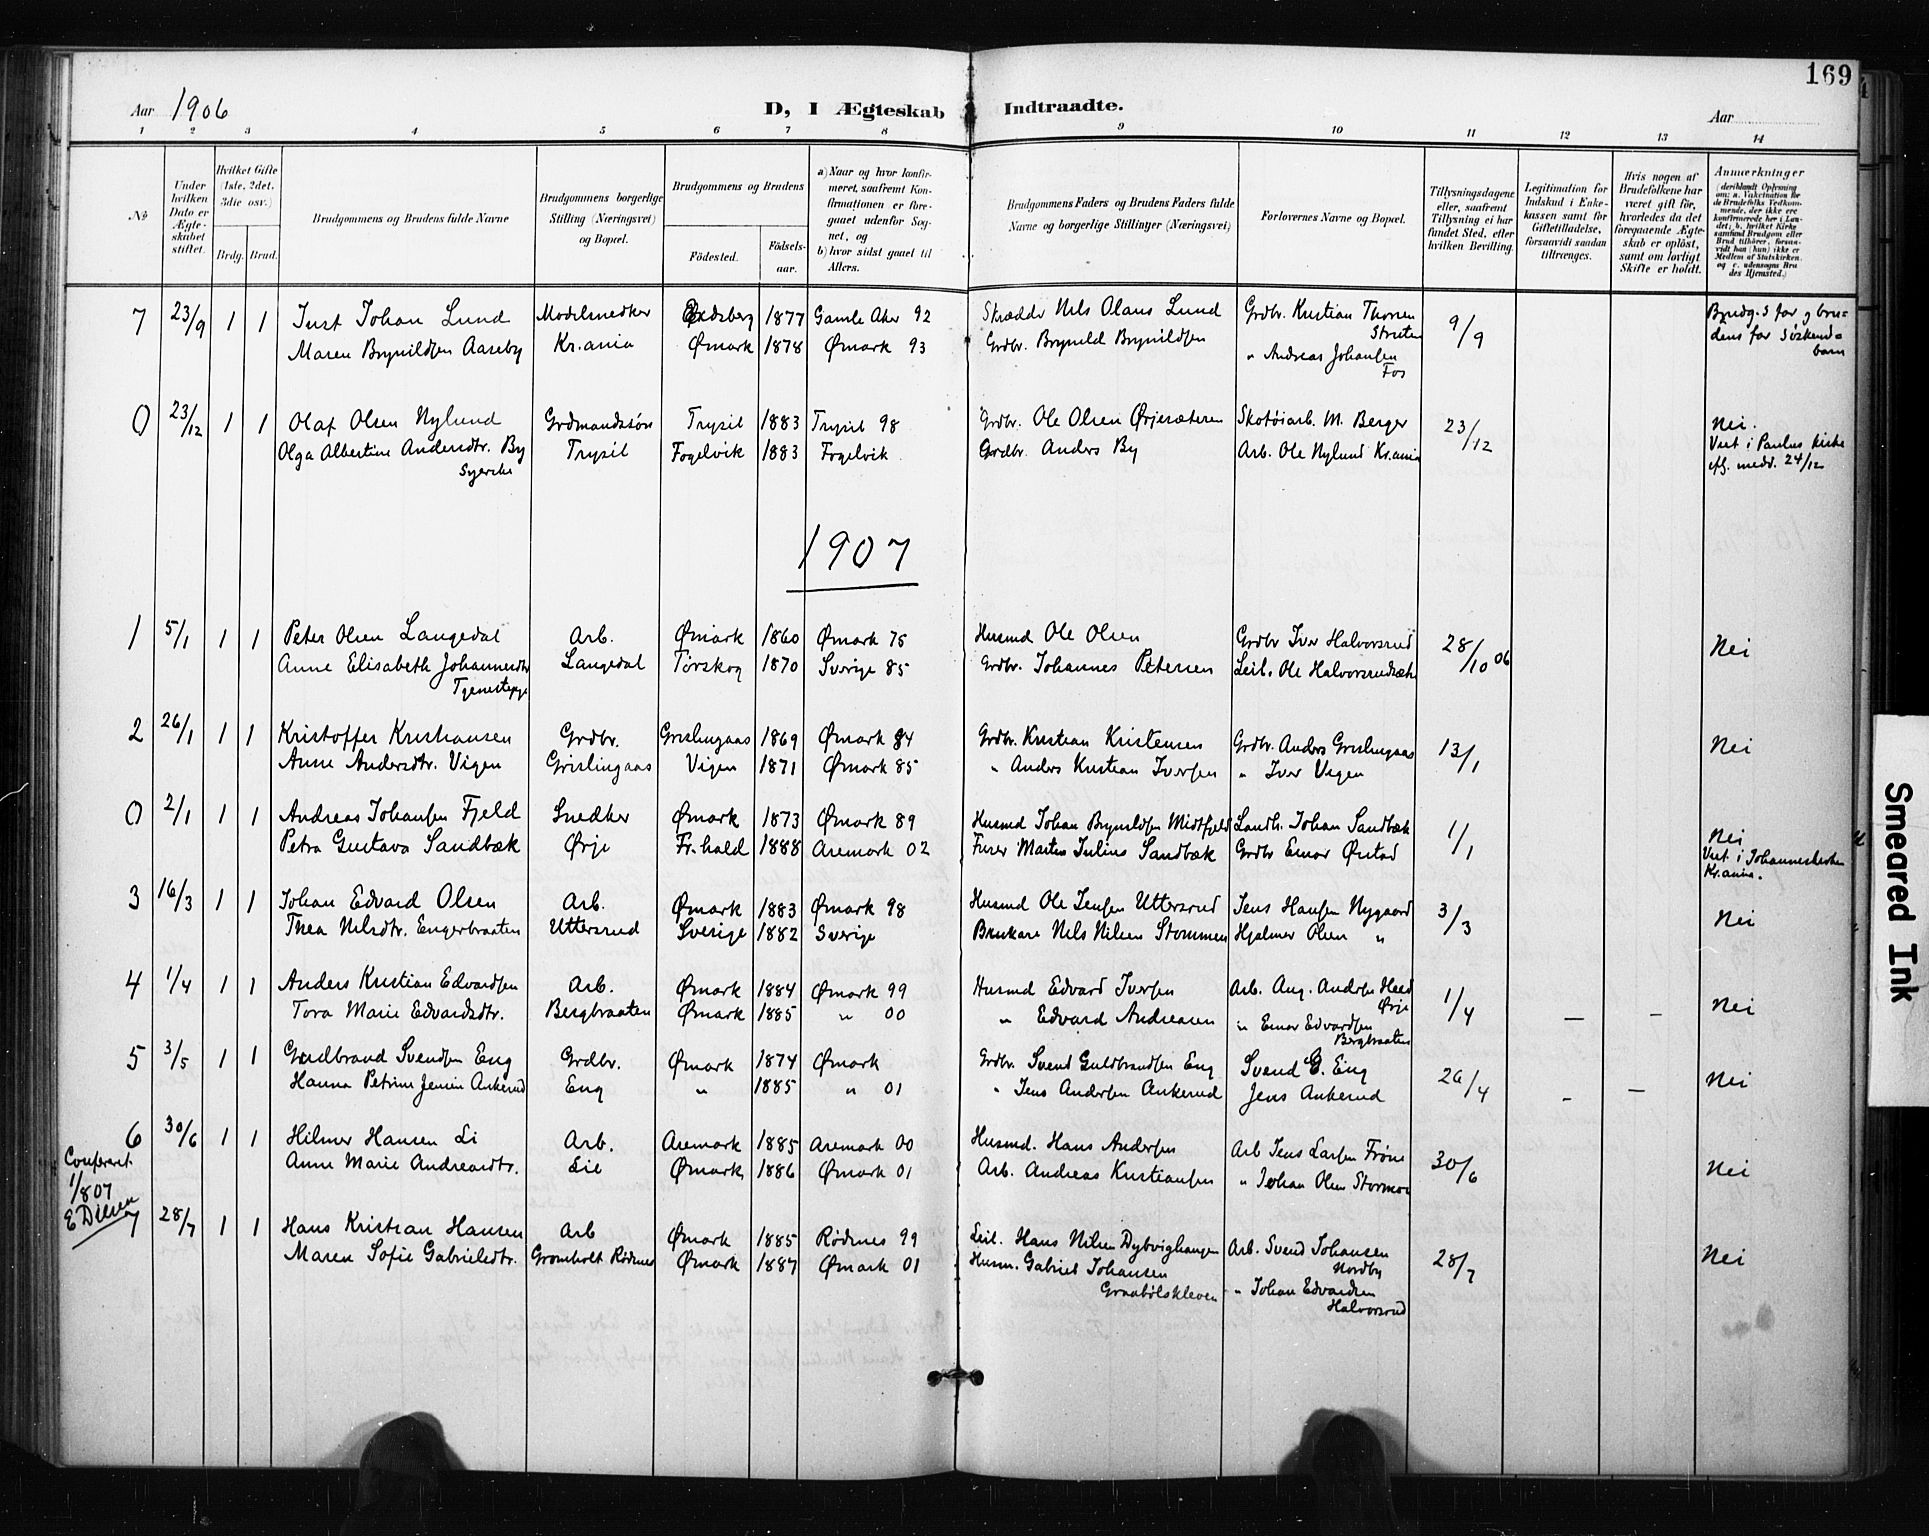 169
Aar 1906
D, I Ægteskab Indtraadte.
Aar
1 2 3 4 5 6 7 8 9 10 11 12 13 14
№
Under hvilken Dato er Ægteskabet stiftet.
Hvilket Gifte (1ste, 2det, 3die osv.)
Brdg. Brud.
Brudgommens og Brudens fulde Navne
Brudgommens borgerlige Stilling (Næringsvei) og Bopæl.
Brudgommens og Brudens
Fødested.
Fødselsaar.
a) Naar og hvor konfirmeret, saafremt Konfirmationen er foregaaet udenfor Sognet, og
b) hvor sidst gaaet til Alters.
Brudgommens Faders og Brudens Faders fulde Navne og borgerlige Stillinger (Næringsvei)
Forlovernes Navne og Bopæl.
Tillysningsdagene eller, saafremt Tillysning ei har fundet Sted, efter hvilken Bevilling.
Legitimation for Indskud i Enkekassen samt for Giftetilladelse, forsaavidt saadan tiltrænges.
Hvis nogen af Brudefolkene har været gift før, hvorledes da det foregaaende Ægteskab er opløst, samt om lovligt Skifte er holdt.
Anmærkninger
(deriblandt Oplysning om: a. Vaccination for de Brudefolks Vedkommende, der ikke ere konfirmerede her i Landet; b. hvilket Kirkesamfund Brudgom eller Brud tilhører, forsaavidt han (hun) ikke er Medlem af Statskirken, og c. udensogns Brudes Hjemsted.)
7 23/9 1 1 Just Johan Lund Modelsnedker Eidsberg 1877 Gamle Aker 92 Skrædder Nils Olaus Lund Grdbr. Kristian Thoresen 9/9 Brudg.s far og bru-
Maren Brynildsen Aaseby Kr.ania Ømark 1878 Ømark 93 Grdbr. Brynild Brynildsen Struten " Andreas Johansen Fos dens far søskend=
barn
0 23/12 1 1 Olaf Olsen Nylund Grdmandssøn Trysil 1883 Trysil 98 Grdbr. Ole Olsen Ørjesæteren Skotøiarb. M. Berger 23/12 Nei.
Olga Albertine Andersdtr. By Trysil Fogelvik 1883 Fogelvik Grdbr. Anders By Arb. Ole Nylund Kr.ania Viet i Paulus kirke
Syerske efl. medd. 24/12
1907
1 5/1 1 1 Peter Olsen Langedal Arb. Ømark 1860 Ømark 75 Husmd Ole Olsen Grdbr Iver Halvorsrud 28/10 06 Nei
Anne Elisabeth Johannesdtr Langedal Tørskog 1870 Sverige 85 Grdbr. Johannes Petersen Leil. Ole Halvorsrudsæter
Tjenestepige
2 26/1 1 1 Kristoffer Kristiansen Grdbr. Grislingaas 1869 Ømark 84 Grdbr. Kristian Kristensen Grdbr. Anders Grislingaas 13/1 Nei
Anne Andersdtr. Vigen Grislingaas Vigen 1871 Ømark 85 " Anders Kristian Iversen " Iver Vigen
0 2/1 1 1 Andreas Johansen Fjeld Snedker Ømark 1873 Ømark 89 Husmd Johan Brynildsen Midtfjeld Landh. Johan Sandbæk 1/1 Nei
Petra Gustava Sandbæk Ørje Fr.hald 1888 Aremark 02 Furer Martin Julius Sandbæk Grdbr Einar Ørstad Viet i Johanneskirken
Kr.ania.
3 16/3 1 1 Johan Edvard Olsen Arb. Ømark 1883 Ømark 98 Husmd Ole Jensen Uttersrud Jens Hansen Nygaard 3/3 Nei
Thea Nilsdtr. Engerbraaten Uttersrud Sverige 1882 Sverige Brukare Nils Nilsen Stommen Hjalmer Olsen "
4 1/4 1 1 Anders Kristian Edvardsen Arb. Ømark 1884 Ømark 99 Husmd Edvard Iversen Arb. Aug. Andersen Heed Ørje 1/4 – – Nei
Tora Marie Edvardsdtr. Bergbraaten Ømark 1885 " 00 " Edvard Andreasen " Einar Edvardsen
Bergbraaten
5 3/5 1 1 Guldbrand Svendsen Eng Grdbr. Ømark 1874 Ømark Grdbr. Svend Guldbrandsen Eng Svend G. Eng 26/4 – – Nei
Hanna Petrine Jensin Ankerud Eng " 1885 " 01 " Jens Andersen Ankerud Jens Ankerud
6 30/6 1 1 Hilmer Hansen Li Arb. Aremark 1885 Aremark 00 Husmd. Hans Andersen Arb Jens Larsen Frøne 30/6 Nei
Anne Marie Andreasdtr. Lie Ømark 1886 Ømark 01 Arb. Andreas Kristiansen " Johan Olsen Stormoen
Conferert
1/8 07
7 28/7 1 1 Hans Kristian Hansen Arb Ømark 1885 Rødenes 99 Leil. Hans Nilsen Dybvighaugen Arb. Svend Johansen 28/7 Nei
Maren Sofie Gabrielsdtr. Gromholt Rødenes Ømark 1887 Ømark 01 Husm. Gabriel Johansen Nordby
Graabølskleven " Johan Edvardsen
Halvorsrud
Smeared Ink